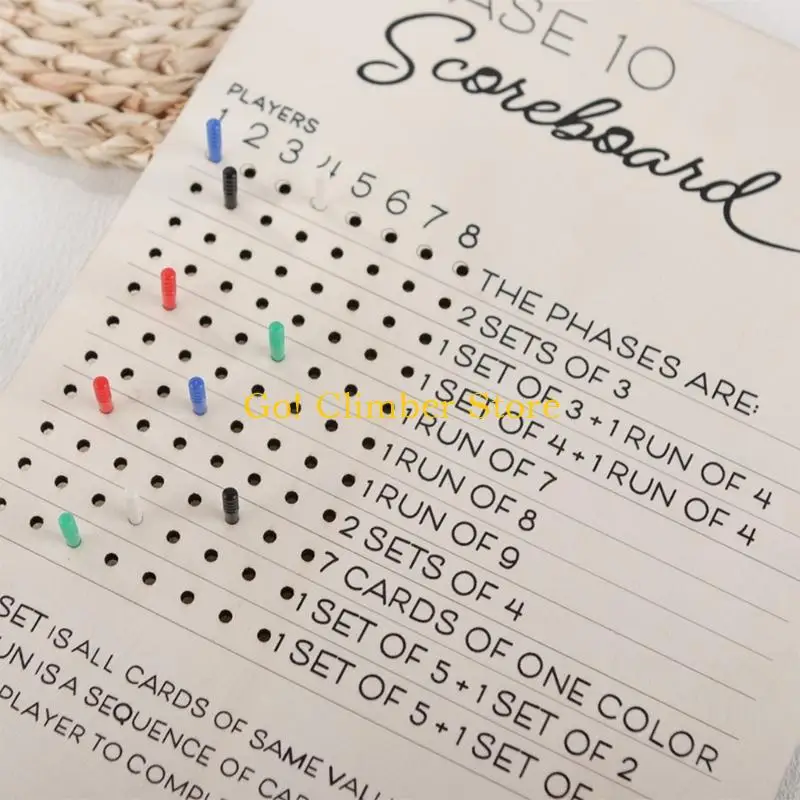 ASE 10
Scoreboard
PLAYERS
1 2 3 4 5 6 7 8
THE PHASES ARE:
2 SETS OF 3
1 SET OF 3 + 1 RUN OF 4
1 SET OF 4 + 1 RUN OF 4
1 RUN OF 7
1 RUN OF 8
1 RUN OF 9
2 SETS OF 4
7 CARDS OF ONE COLOR
1 SET OF 5 + 1 SET OF 2
1 SET OF 5 + 1 SET OF
SET IS ALL CARDS OF SAME VALU
UN IS A SEQUENCE OF CAR
PLAYER TO COMPL
Got Climber Store